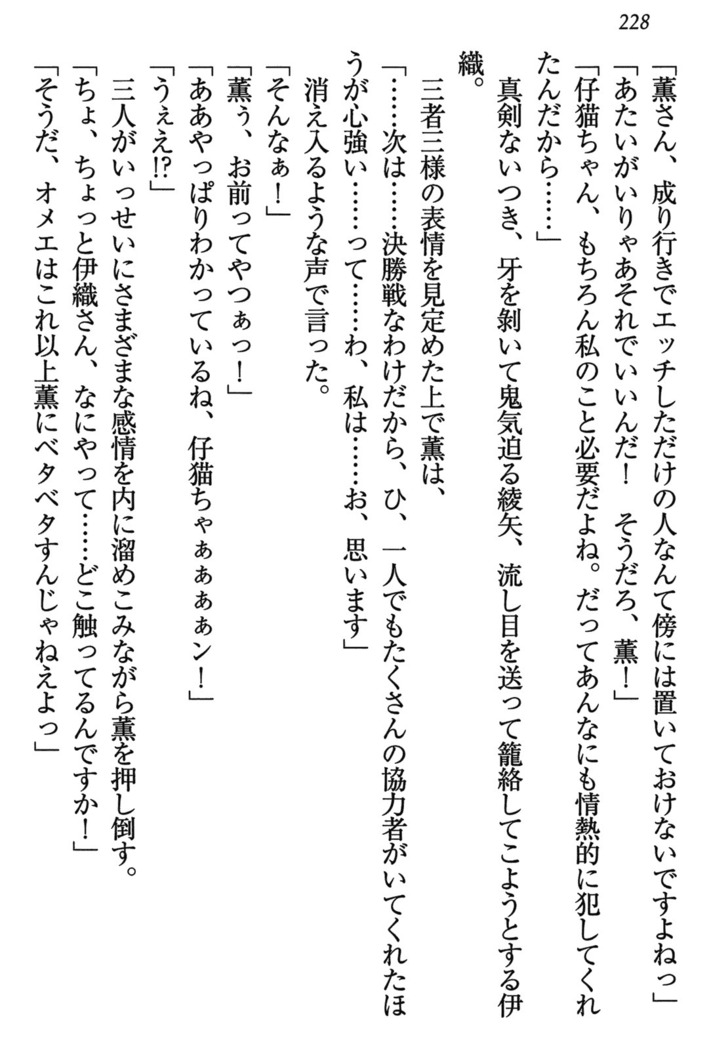 228
「薫さん、成り行きでエッチしただけの人なんて傍には置いておけないですよねっ」
「あたいがいりゃあそれでいいんだ！　そうだろ、薫！」
「仔猫ちゃん、もちろん私のこと必要だよね。だってあんなにも情熱的に犯してくれ
たんだから……」
　真剣ないつき、牙を剝いて鬼気迫る綾矢、流し目を送って籠絡してこようとする伊
織。
　三者三様の表情を見定めた上で薫は、
「……次は……決勝戦なわけだから、ひ、一人でもたくさんの協力者がいてくれたほ
うが心強い……って……わ、私は……お、思います」
　消え入るような声で言った。
「そんなぁ！」
「薫ぅ、お前ってやつぁっ！」
「ああやっぱりわかっているね、仔猫ちゃぁぁぁぁン！」
「うぇえ!?」
　三人がいっせいにさまざまな感情を内に溜めこみながら薫を押し倒す。
「ちょ、ちょっと伊織さん、なにやって……どこ触ってるんですか！」
「そうだ、オメエはこれ以上薫にベタベタすんじゃねえよっ」